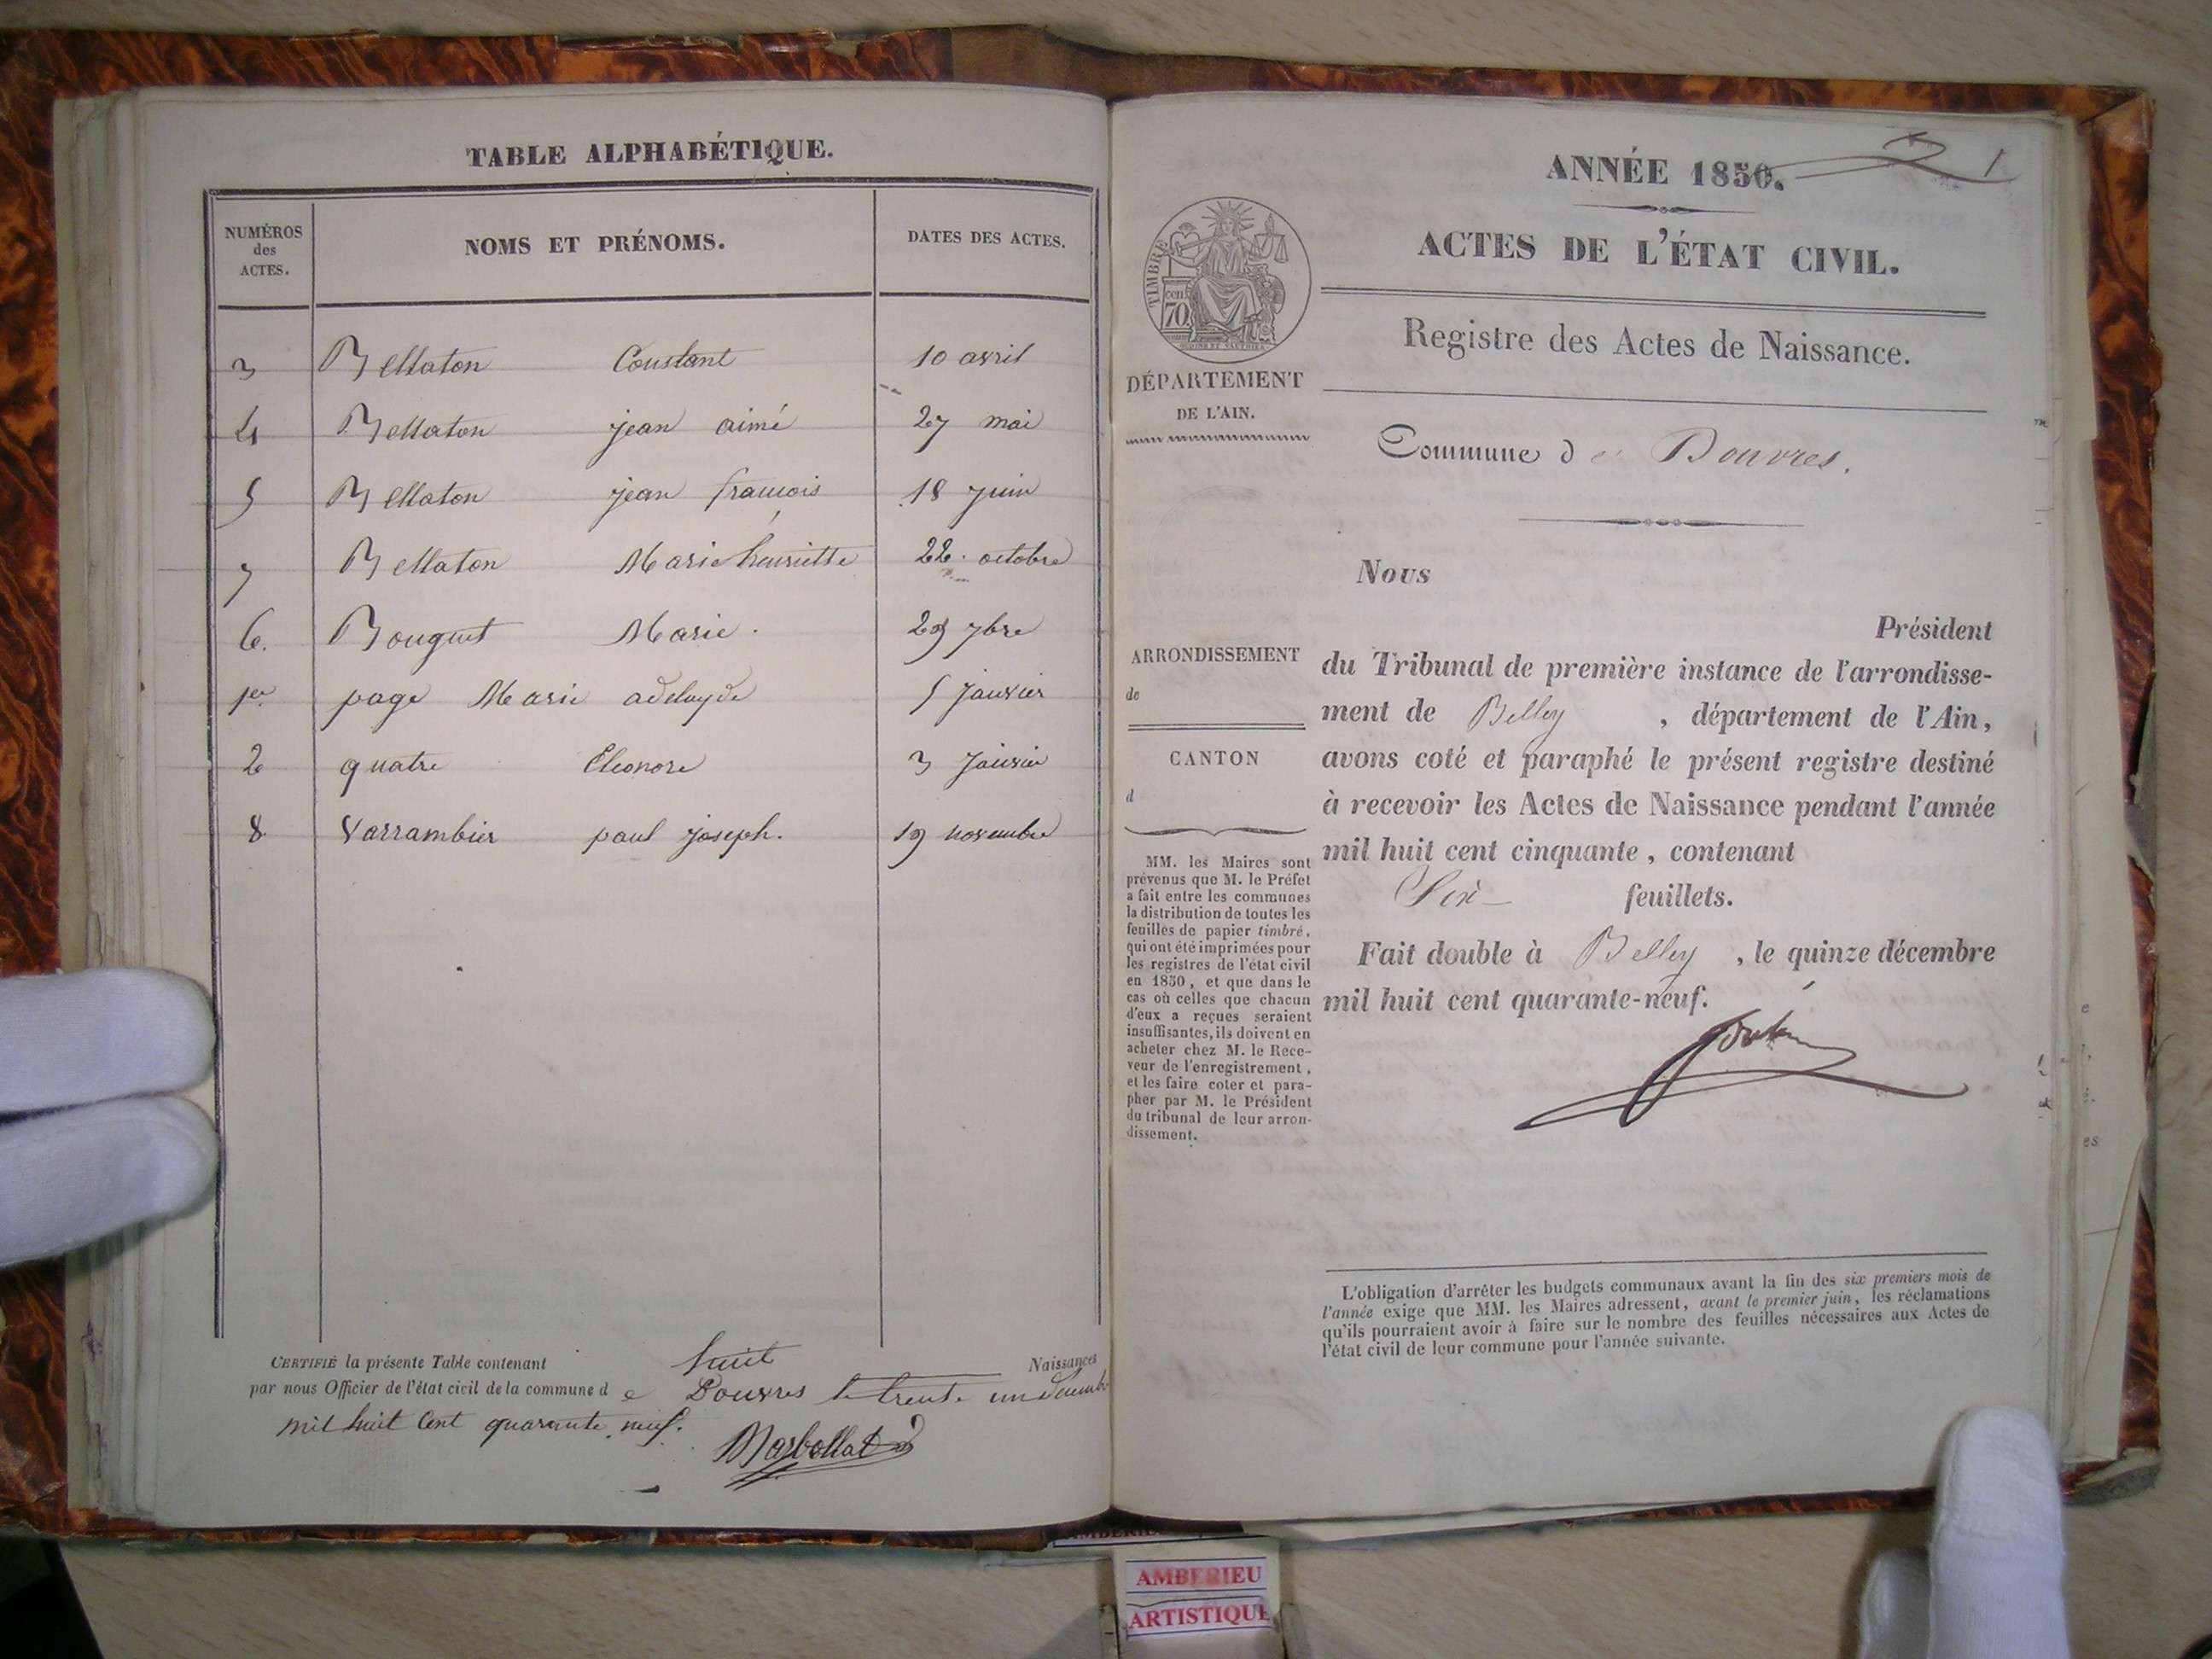 TABLE ALPHABÉTIQUE.
NUMÉROS
des
ACTES.
NOMS ET PRÉNOMS.
DATES DES ACTES.
3 Bellaton Constant 10 avril
4 Bellaton jean aimé 27 mai
5 Bellaton jean francois 18 juin
7 Bellaton Marie henriette 22. octobre
6. Bouguet Marie. 29 7bre
1er page Marie adelayde 5 janvier
2 quatre Eleonore 3 janvier
8 Varrambier paul joseph. 19 novembre
CERTIFIÉ la présente Table contenant huit Naissances
par nous Officier de l'état civil de la commune d e Douvres le trente un decembre
mil huit Cent quarante neuf.
ANNÉE 1850.
1
ACTES DE L'ÉTAT CIVIL.
Registre des Actes de Naissance.
TIMBRE
cen.
70.
DÉPARTEMENT
DE L'AIN.
Commune d e Douvres.
Nous
Président
du Tribunal de première instance de l'arrondisse-
ment de Belley , département de l'Ain,
avons coté et paraphé le présent registre destiné
à recevoir les Actes de Naissance pendant l'année
mil huit cent cinquante, contenant
Six feuillets.
Fait double à Belley , le quinze décembre
mil huit cent quarante-neuf.
ARRONDISSEMENT
de
CANTON
d
MM. les Maires sont
prévenus que M. le Préfet
a fait entre les communes
la distribution de toutes les
feuilles de papier timbré,
qui ont été imprimées pour
les registres de l'état civil
en 1850, et que dans le
cas où celles que chacun
d'eux a reçues seraient
insuffisantes, ils doivent en
acheter chez M. le Rece-
veur de l'enregistrement,
et les faire coter et para-
pher par M. le Président
du tribunal de leur arron-
dissement.
L'obligation d'arrêter les budgets communaux avant la fin des six premiers mois de
l'année exige que MM. les Maires adressent, avant le premier juin, les réclamations
qu'ils pourraient avoir à faire sur le nombre des feuilles nécessaires aux Actes de
l'état civil de leur commune pour l'année suivante.
AMBERIEU
ARTISTIQUE